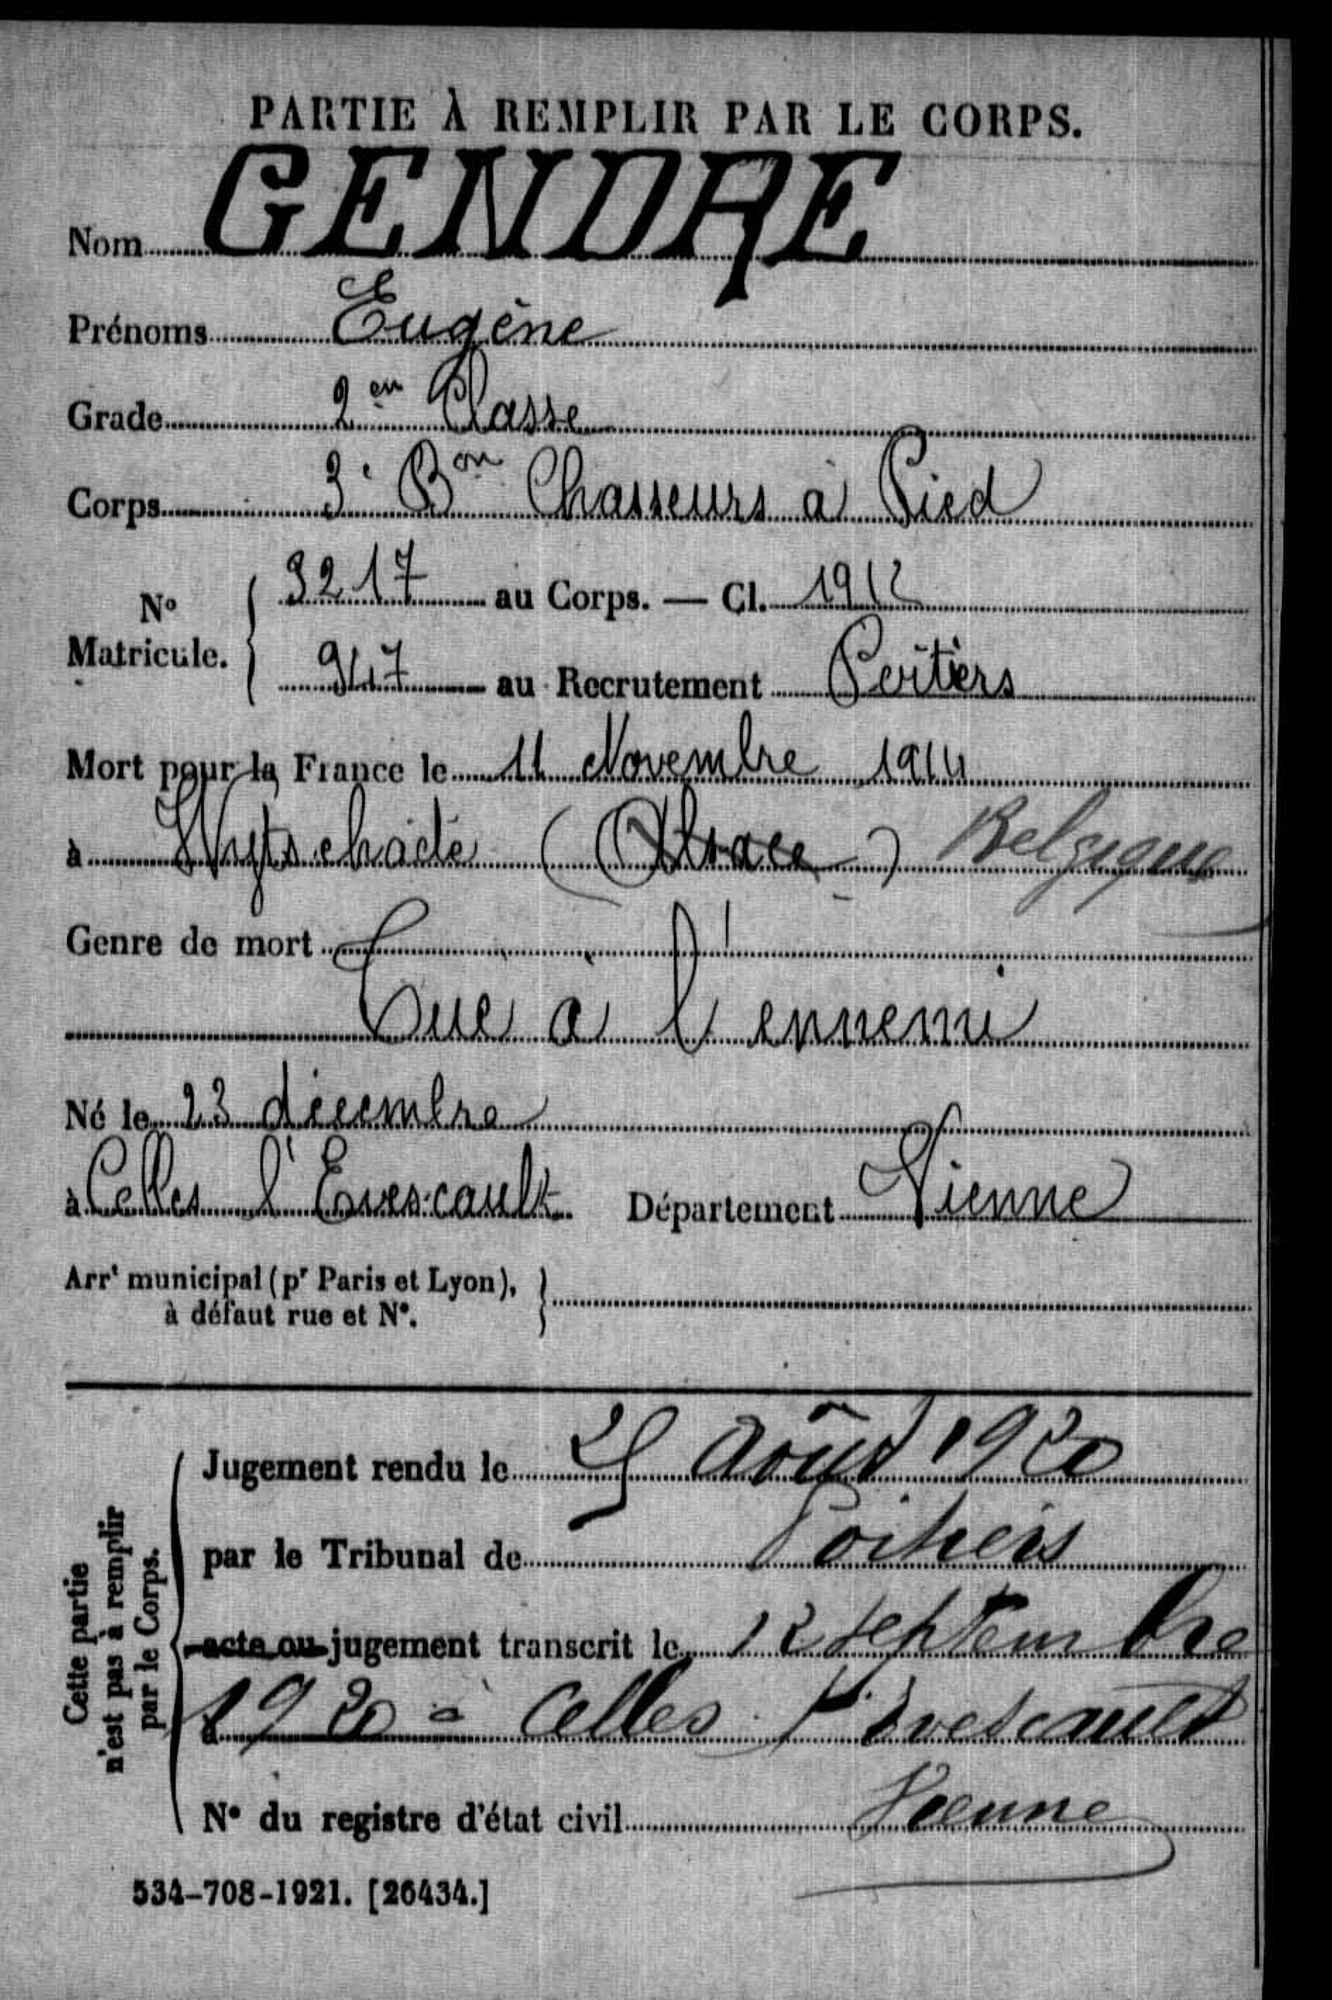 PARTIE À REMPLIR PAR LE CORPS.
Nom GENDRE
Prénoms Eugène
Grade 2en Classe
Corps 3e Bon Chasseurs à Pied
No Matricule. 3217 au Corps. — Cl. 1912
947 au Recrutement Poitiers
Mort pour la France le 11 Novembre 1914
à Wytschaete (Alsace) Belgique
Genre de mort
Tué à l'ennemi
Né le 23 décembre
à Celles l'Evescault Département Vienne
Arrt municipal (pr Paris et Lyon),
à défaut rue et No.
Cette partie
n'est pas à remplir
par le Corps.
Jugement rendu le 25 Août 1920
par le Tribunal de Poitiers
acte ou jugement transcrit le 12 septembre
à 1920 à Celles l'Evescault
No du registre d'état civil Vienne
534-708-1921. [26434.]